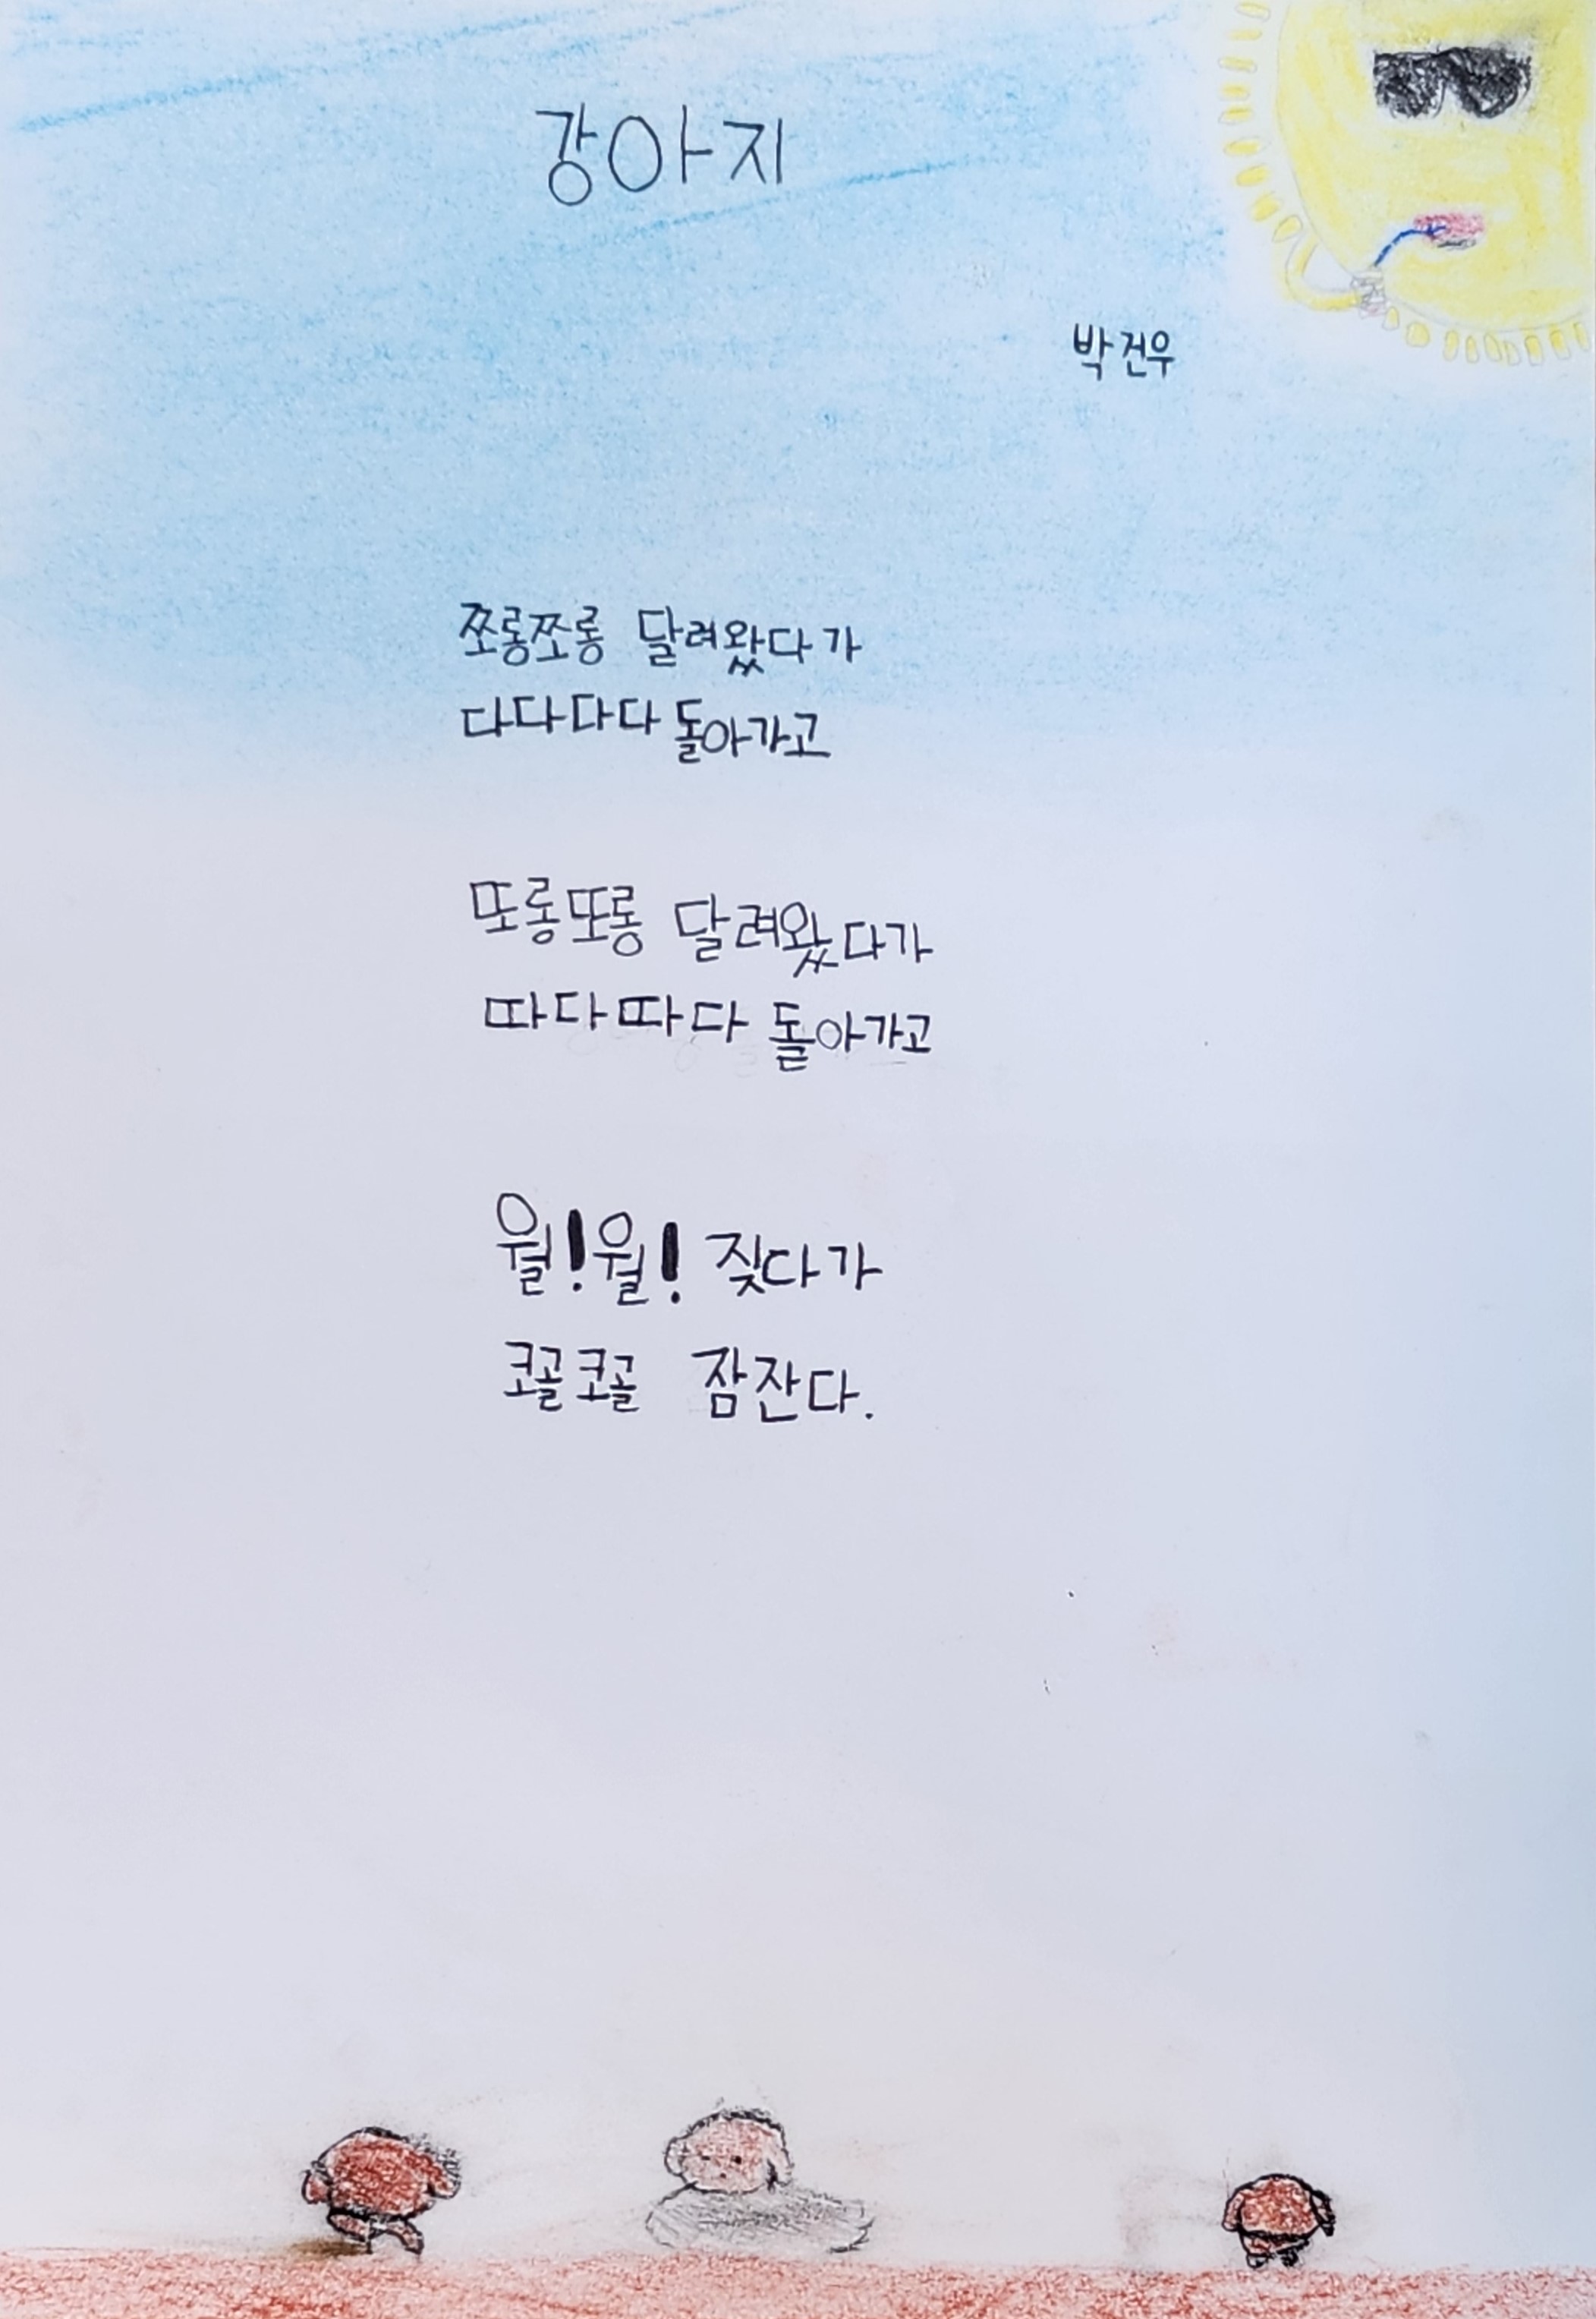 강아지
박건우
쪼롱쪼롱 달려왔다가
다다다다 돌아가고
또롱또롱 달려왔다가
따다따다 돌아가고
월!월! 짖다가
코골코골 잠잔다.